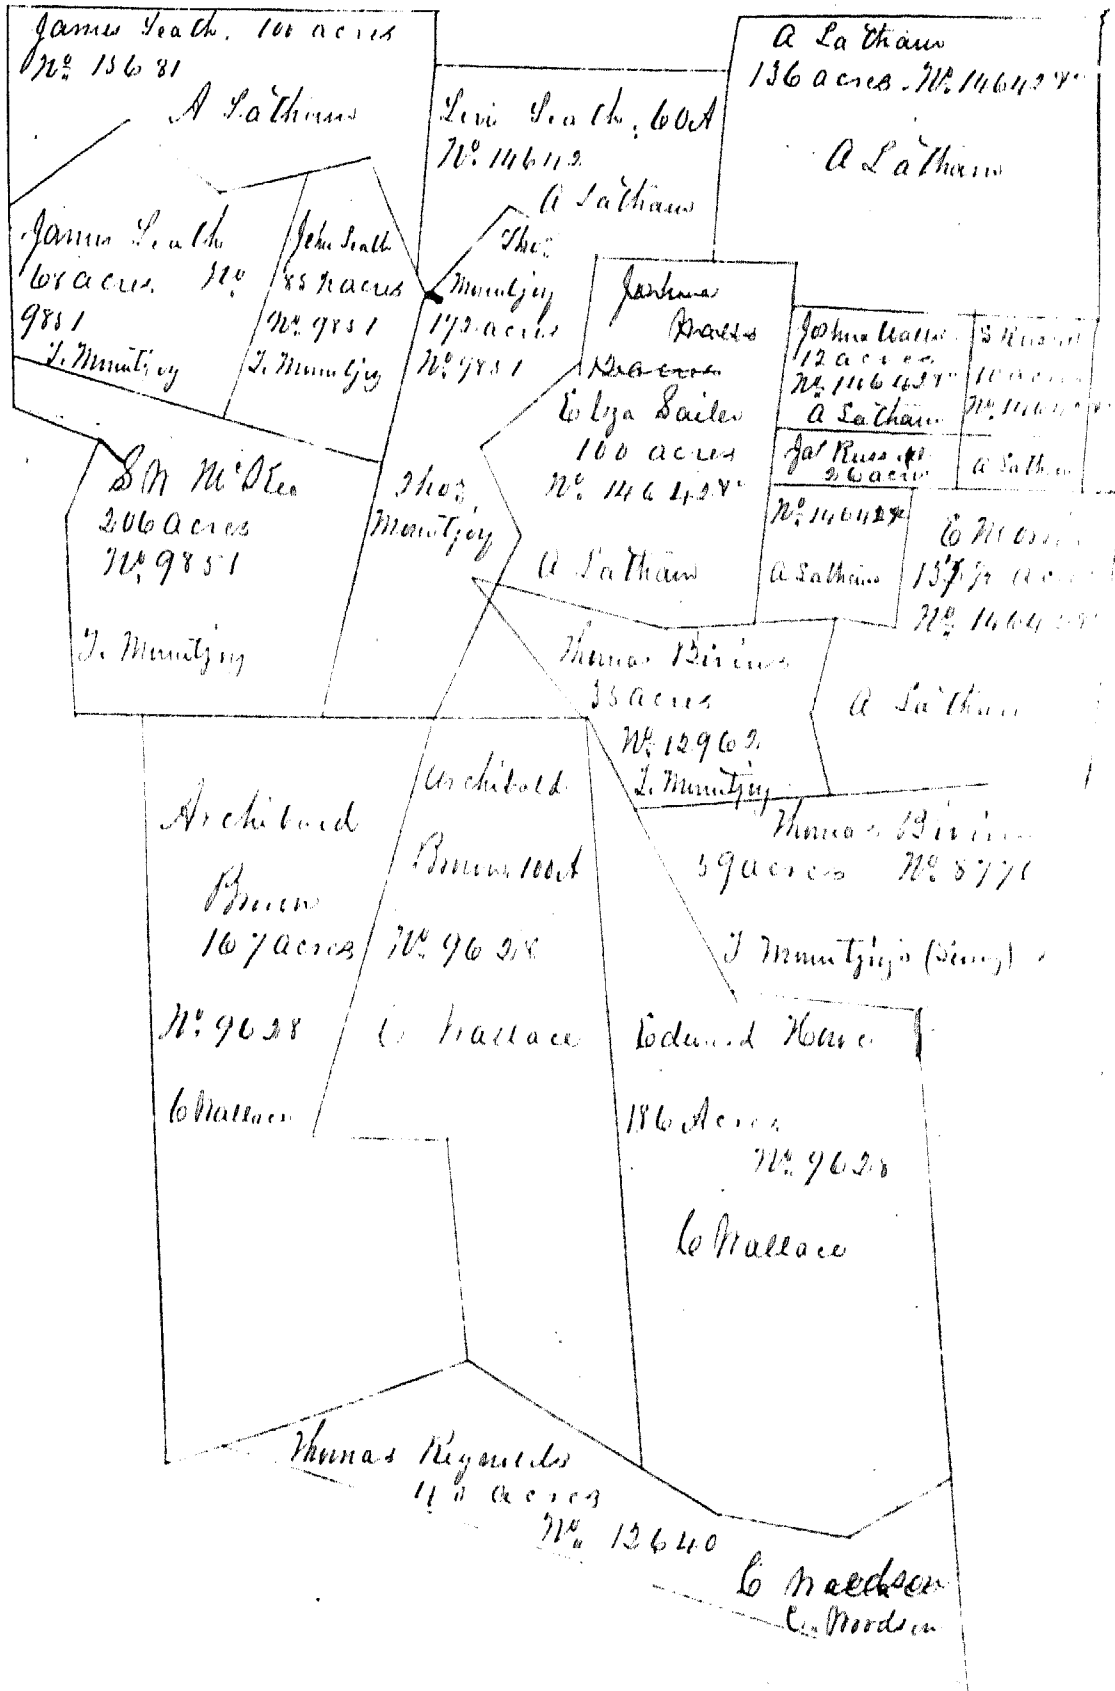 James Leath. 100 acres
No 13681
A Latham
Levi Leath. 60 A
No. 14642
A Latham
A Latham
136 acres. No. 14642
A Latham
James Leath
68 acres No
9851
T. Mountjoy
John Leath
85 acres
No. 9851
T. Mountjoy
Tho:
Mountjoy
172 acres
No. 9851
Joshua
Walls
12 acres
Eliza Sailer
100 acres
No. 14642
A Latham
Joshua Walls
12 acres
No. 14642
A Latham
S Russell
10 acres
No. 1464
A Latham
Jas Russell
26 acres
No. 14642
A Latham
E
acres
No. 14642
A Latham
S W McKee
206 acres
No. 9851
T. Mountjoy
Thos
Mountjoy
Thomas Bivins
35 acres
No. 12962
T. Mountjoy
Thomas Bivins
59 acres No. 877
T Mountjoys
Archibald
167 acres
No. 9628
C Wallace
Archibald
100 A
No. 9628
C Wallace
Edward Howe
186 Acres
No. 9628
C Wallace
Thomas Reynolds
40 acres
No. 12640
C Woodson
C. Woodson